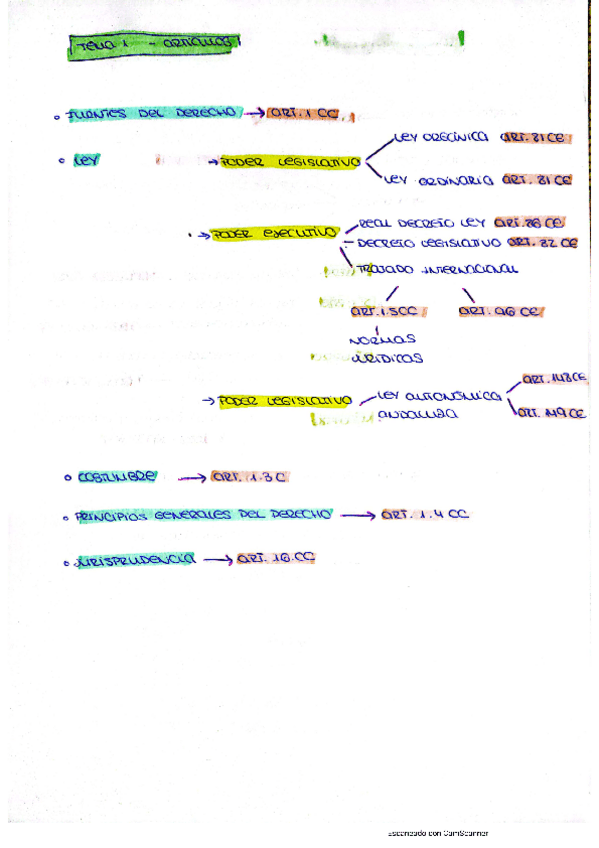 TEMA 1 - ARTÍCULOS
FUENTES DEL DERECHO → ART. 1 CC.
LEY → PODER LEGISLATIVO
LEY ORGÁNICA ART. 81 CE
LEY ORDINARIA ART. 81 CE
→ PODER EJECUTIVO
REAL DECRETO LEY ART. 86 CE
- DECRETO LEGISLATIVO ART. 82 CE
TRATADO INTERNACIONAL
ART. 1.5CC ART. 96 CE
NORMAS
JURÍDICAS
→ PODER LEGISLATIVO
LEY AUTONÓMICA
ANDALUZA
ART. 148 CE
ART. 149 CE
COSTUMBRE → ART. 1.3 C
PRINCIPIOS GENERALES DEL DERECHO → ART. 1.4 CC
JURISPRUDENCIA → ART. 16.CC
Escaneado con CamScanner